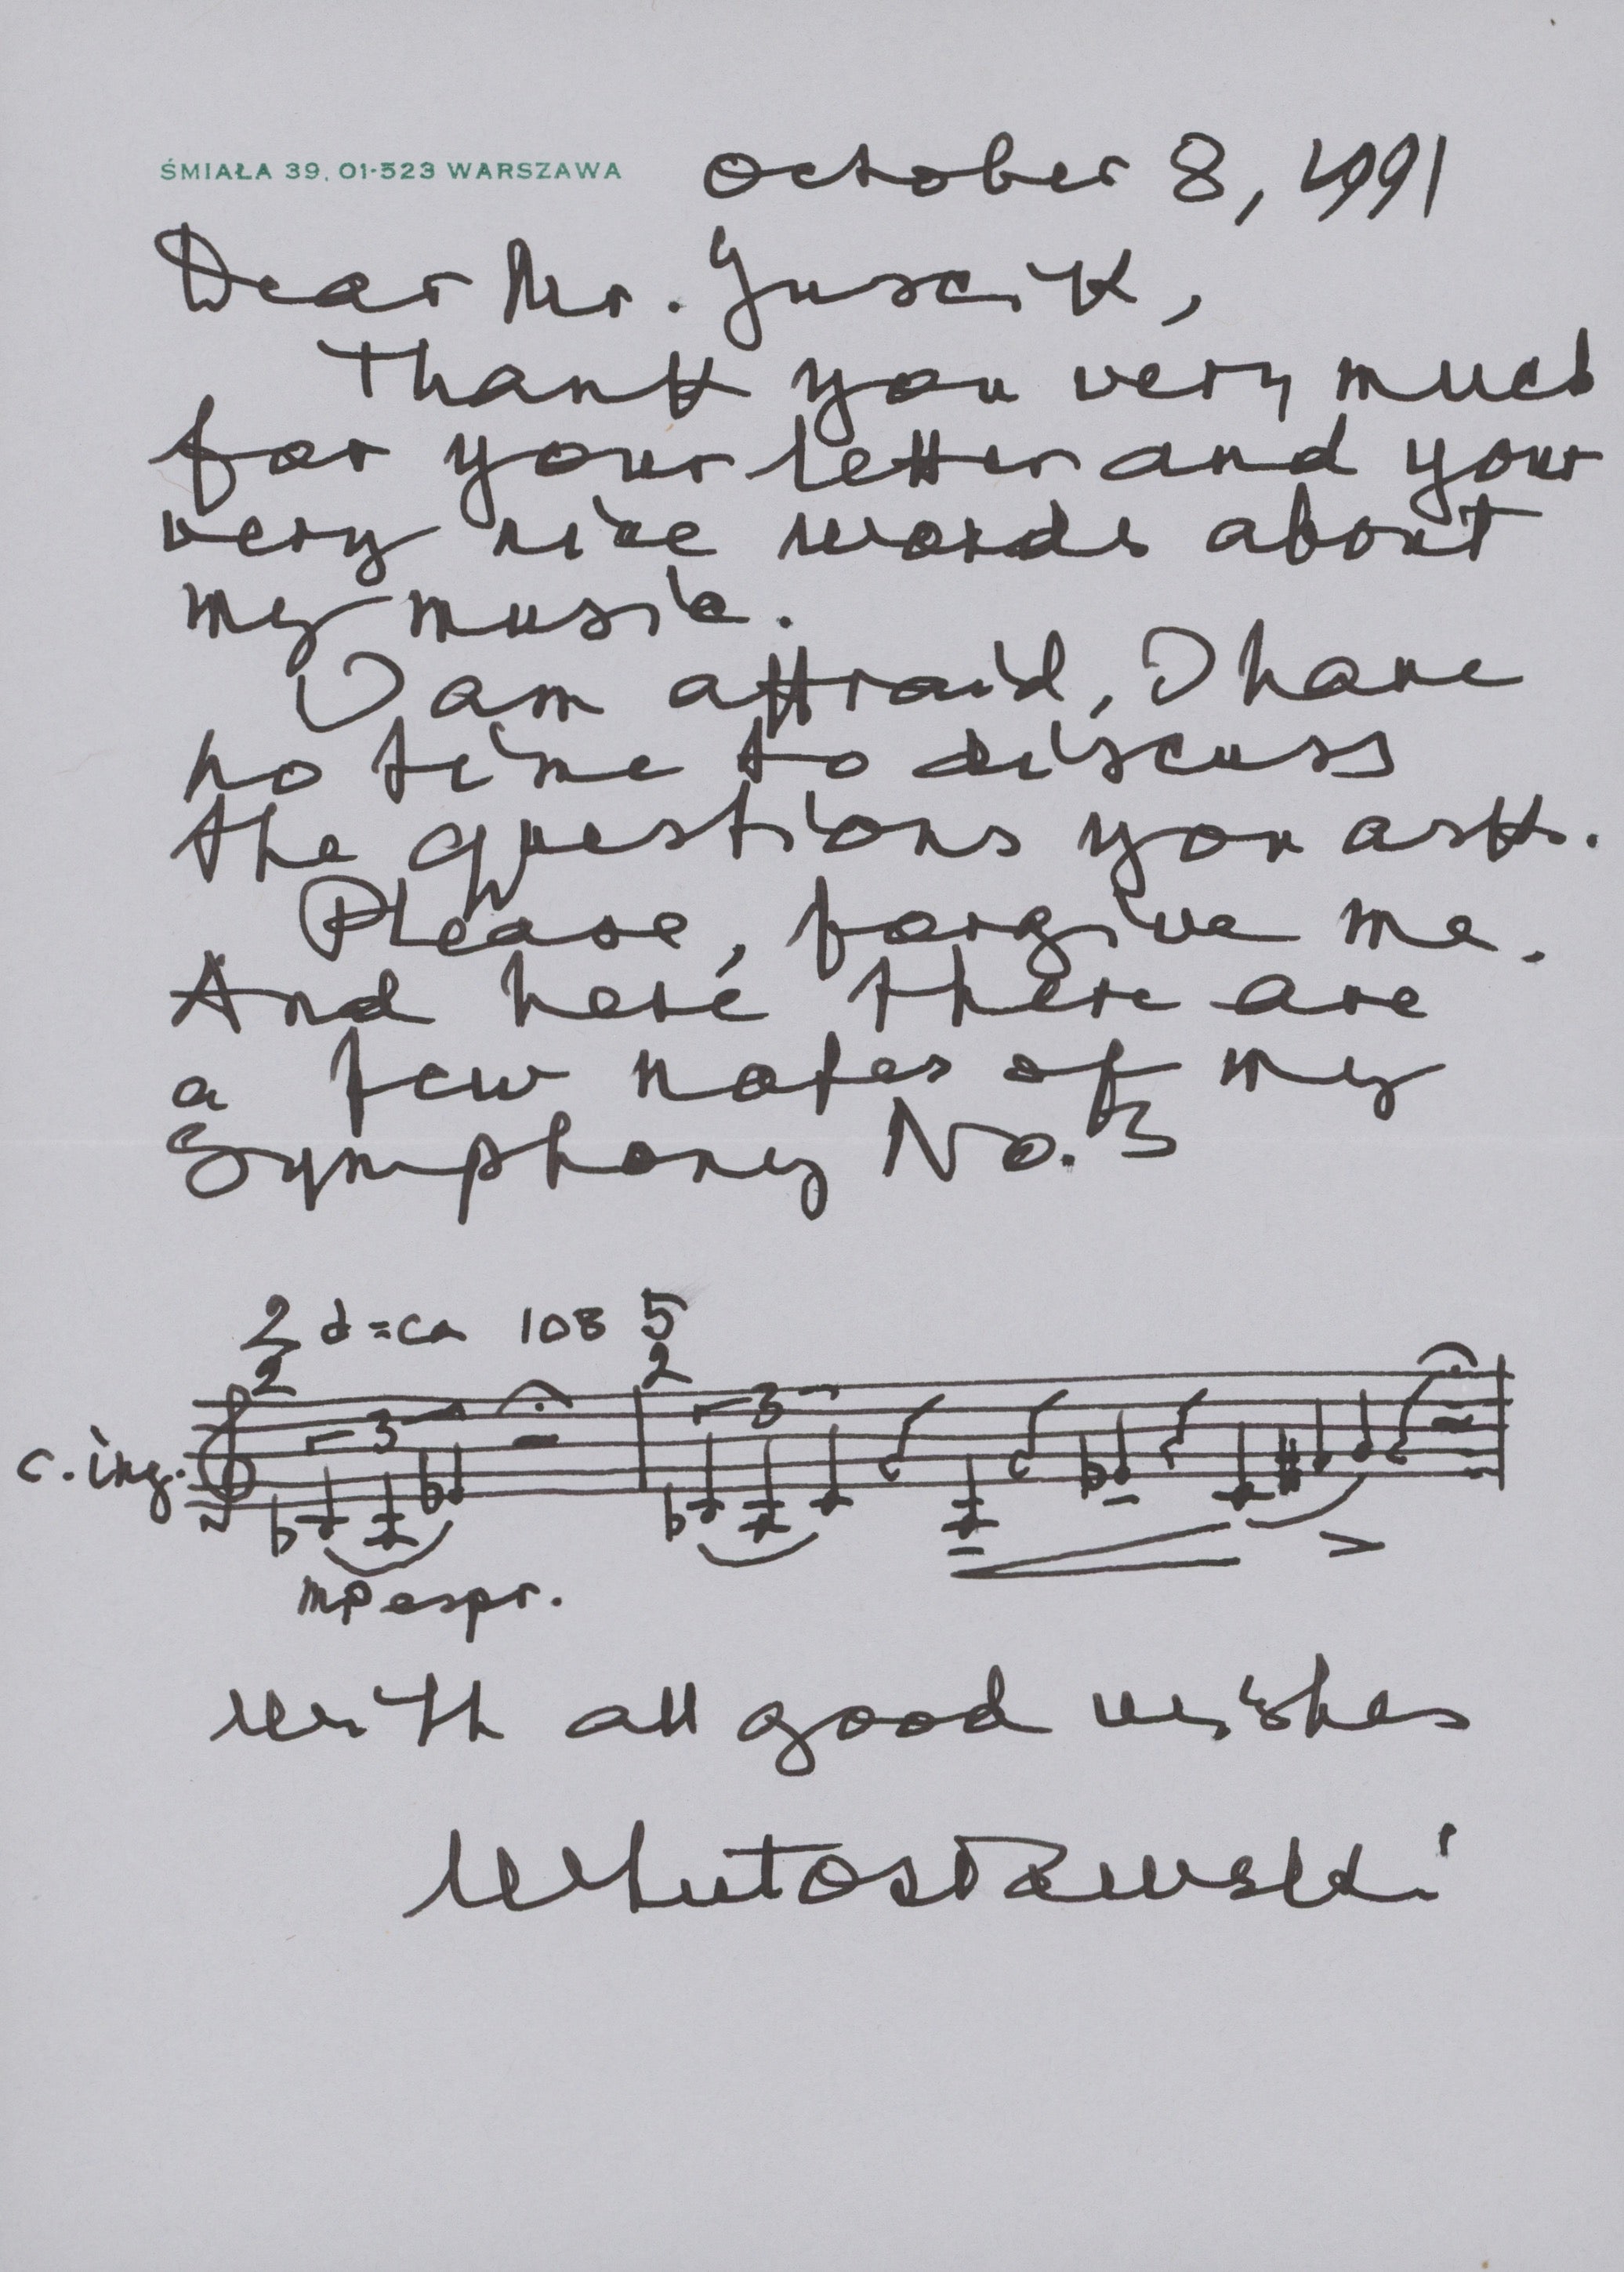 ŚMIAŁA 39, 01-523 WARSZAWA
October 8, 1991
Dear Mr. Juscik,
Thank you very much
for your letter and your
very nice words about
my music.
I am affraid, I have
no time to discuss
the questions you ask.
Please, forgive me.
And here there are
a few notes of my
Symphony No. 3
2 2 𝅗𝅥=ca 108 5 2
3 3
c. ing.
mp espr.
With all good wishes
WLutosławski